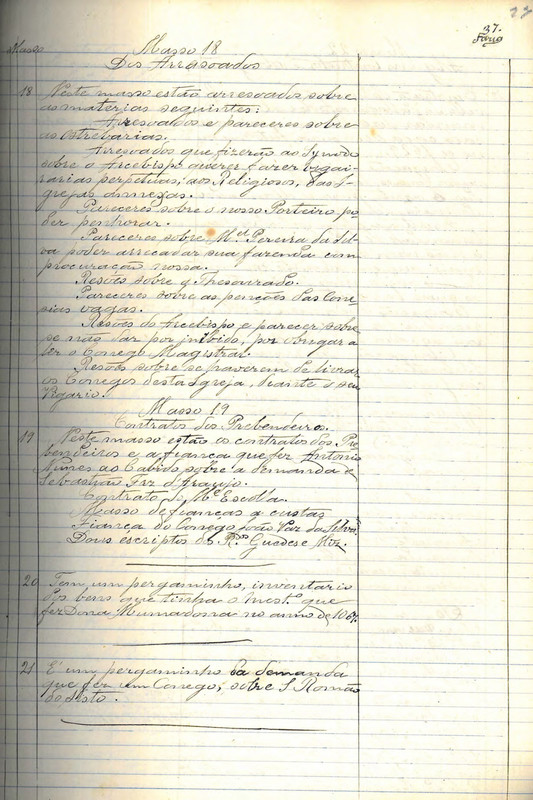 37.
Masso
Masso 18
Dos Arrasoados
18 Neste masso estão arresoados sobre
as materias seguintes:
Arresoados e pareceres sobre
as Estrebarias.
Arresoados que fizerão ao Synodo
sobre o Arcebispo querer fazer vigai-
rarias perpetuas, aos Religiosos, das I-
grejas annexas.
Pareceres sobre o nosso Porteiro po-
der penhorar.
Pareceres sobre M.el Pereira da Sil-
va poder arrecadar sua fazenda com
procuração nossa.
Resões sobre o Thesourado.
Pareceres sobre as penções das Cone-
sias vagas.
Resões do Arcebispo e parecer sobre
se não dar por inibido, por obrigar a
ler o Conego Magistral.
Resões sobre se haverem de livrar
os Conegos desta Igreja, diante o seu
Vigario.
Masso 19
Contratos dos Prebendeiros.
19 Neste masso estão os contratos dos Pre-
bendeiros e a fiança que fez Antonio
Nunes ao Cabido sobre a demanda de
Sebastião Frz d'Araujo.
Contrato do M.e Escolla.
Masso de fianças a custas
Fiança do Conego João Vaz da Silva.
Dous escriptos dos R.os Guedes e
20 Tem um pergaminho, inventario
dos bens que tinha o Most.o que
fez Dona Mumadona no anno de
21 É um pergaminho da demanda
que fez um Conego, sobre S. Romão